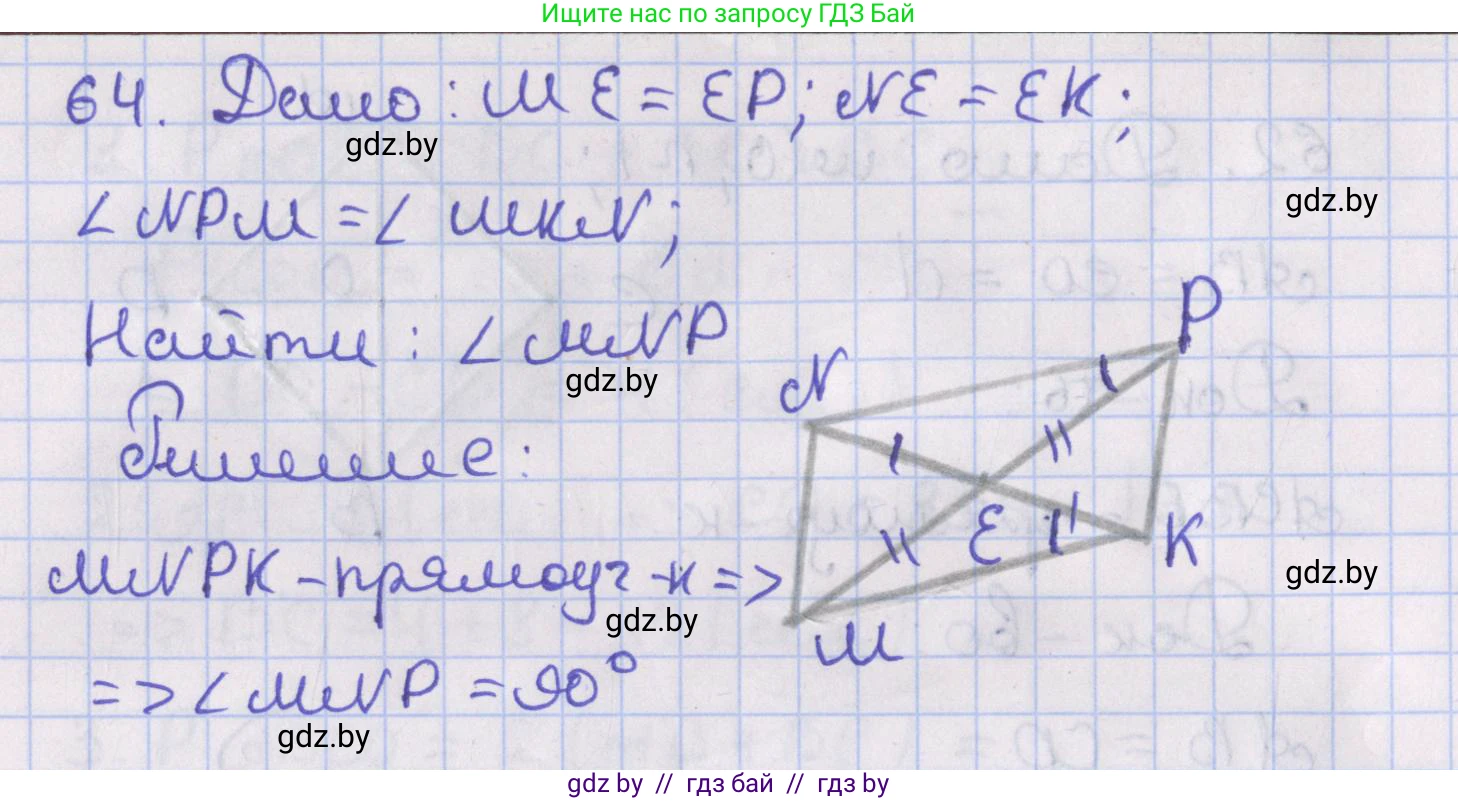 Ищите нас по запросу ГДЗ Бай
64. Дано: ME = EP; NE = EK;
gdz.by
∠NPM = ∠MKN;
gdz.by
Найти: ∠MNP
gdz.by
P
N
Решение:
E
K
MNPK - прямоуг-к =>
gdz.by
gdz.by
M
=> ∠MNP = 90°
gdz.by
gdz by // гдз бай // гдз by